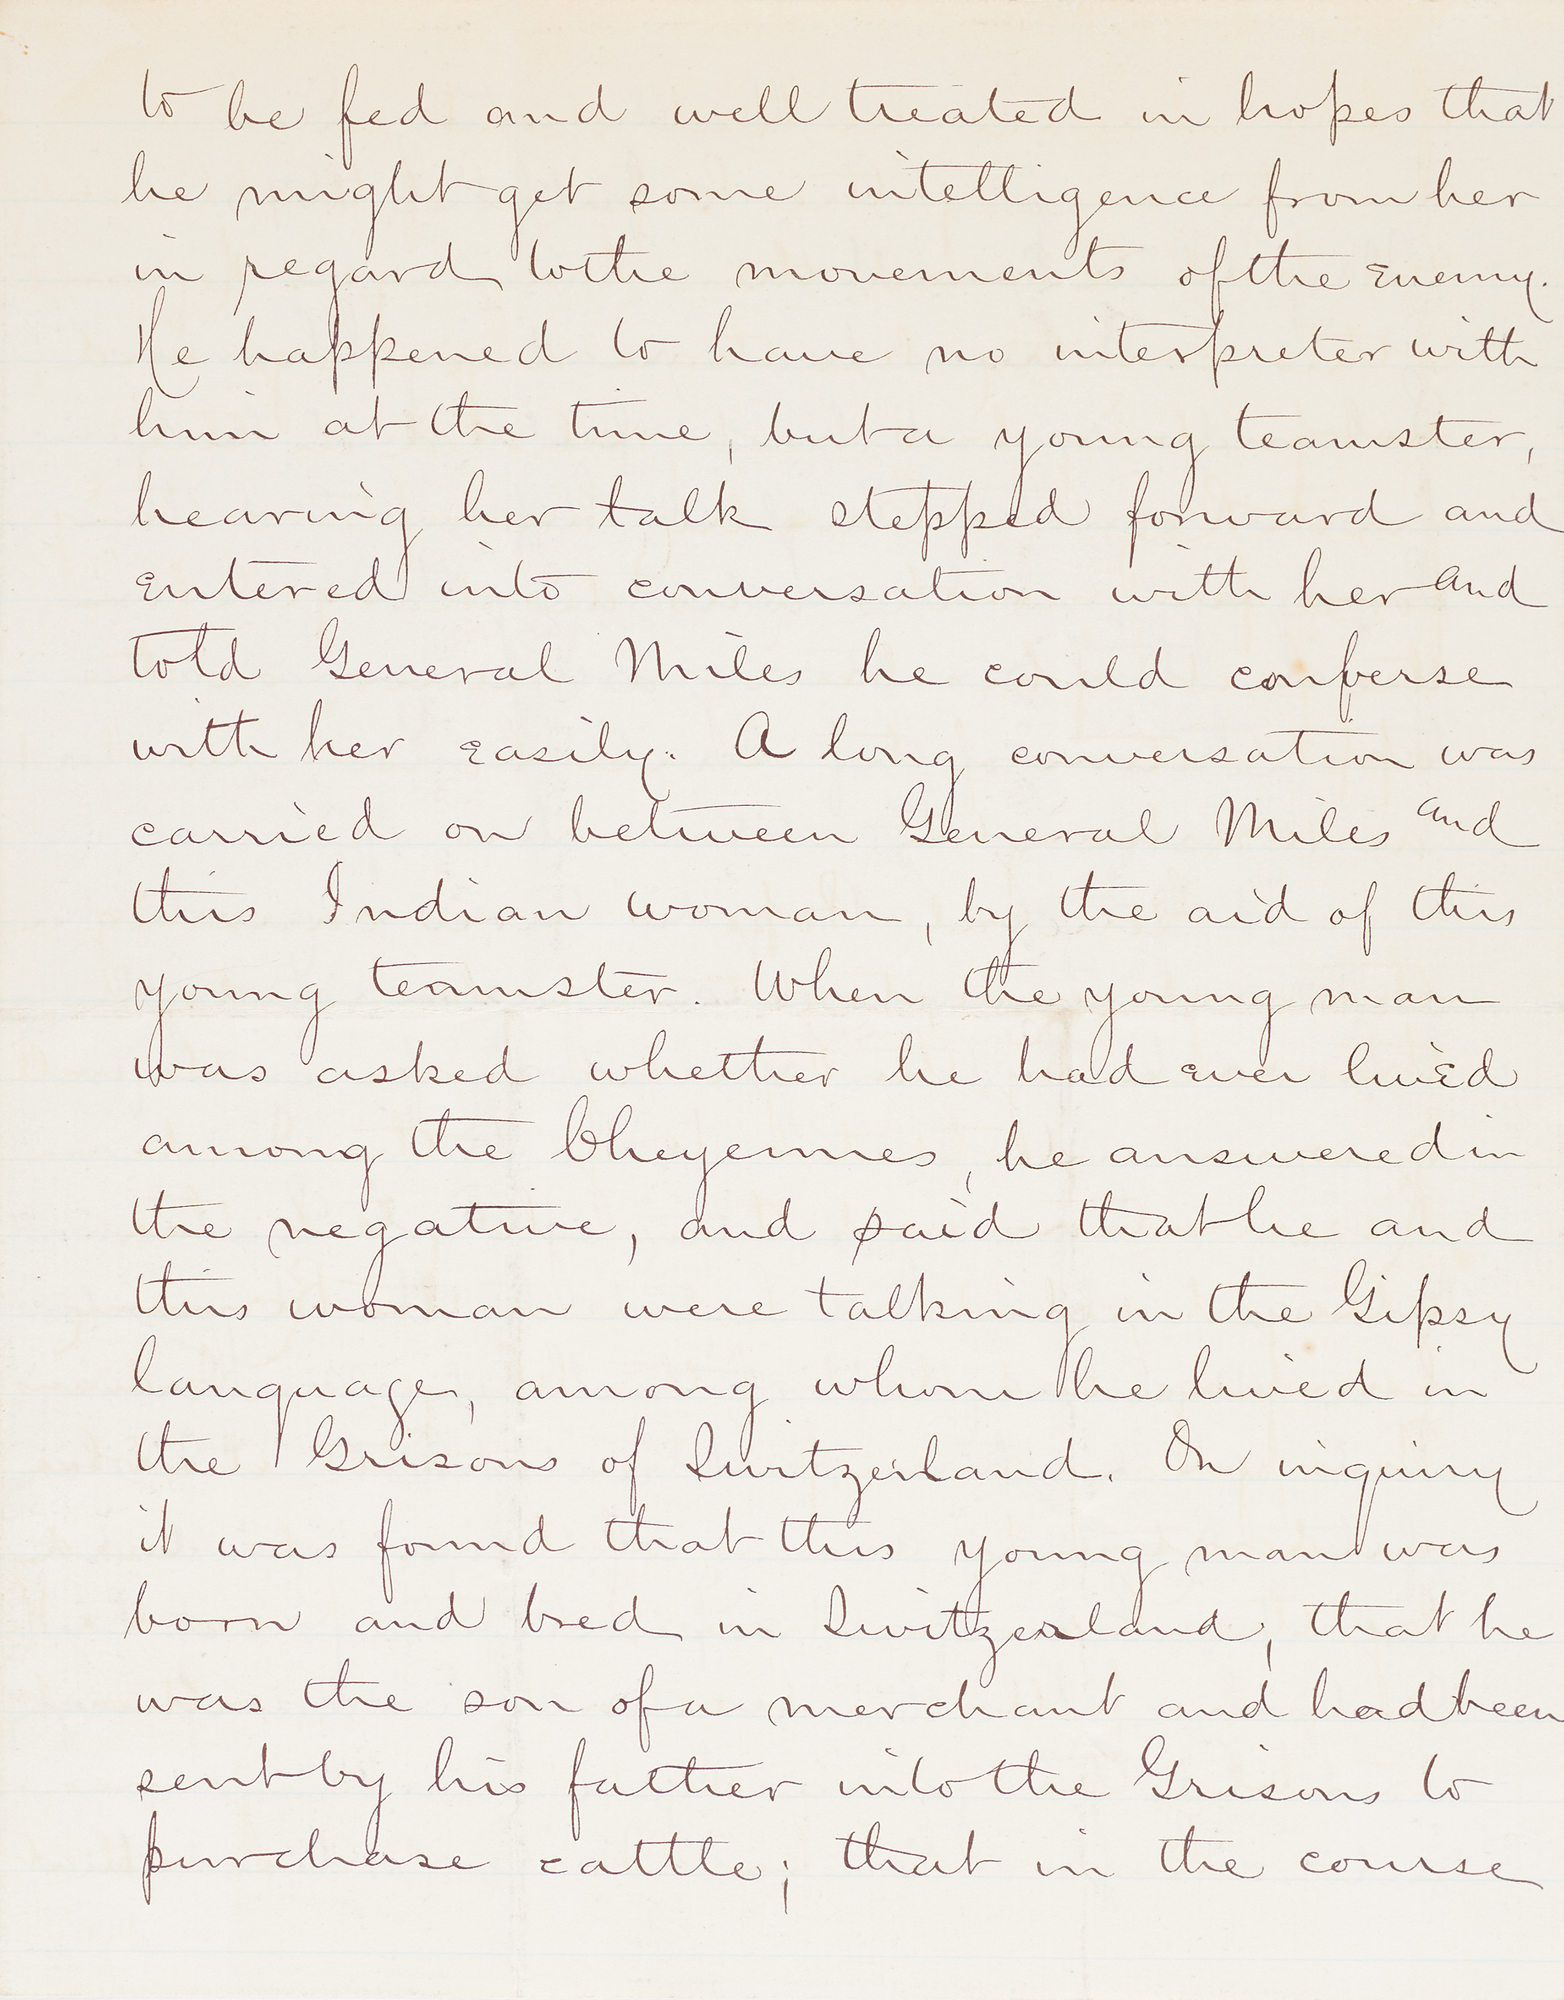 to be fed and well treated in hopes that
he might get some intelligence from her
in regard to the movements of the enemy.
He happened to have no interpreter with
him at the time, but a young teamster,
hearing her talk stepped forward and
entered into conversation with her and
told General Miles he could converse
with her easily. A long conversation was
carried on between General Miles and
this Indian woman, by the aid of this
young teamster. When the young man
was asked whether he had ever lived
among the Cheyennes, he answered in
the negative, and said that he and
this woman were talking in the Gipsy
language, among whom he lived in
the Grisons of Switzerland. On inquiry
it was found that this young man was
born and bred in Switzerland, that he
was the son of a merchant and had been
sent by his father into the Grisons to
purchase cattle; that in the course